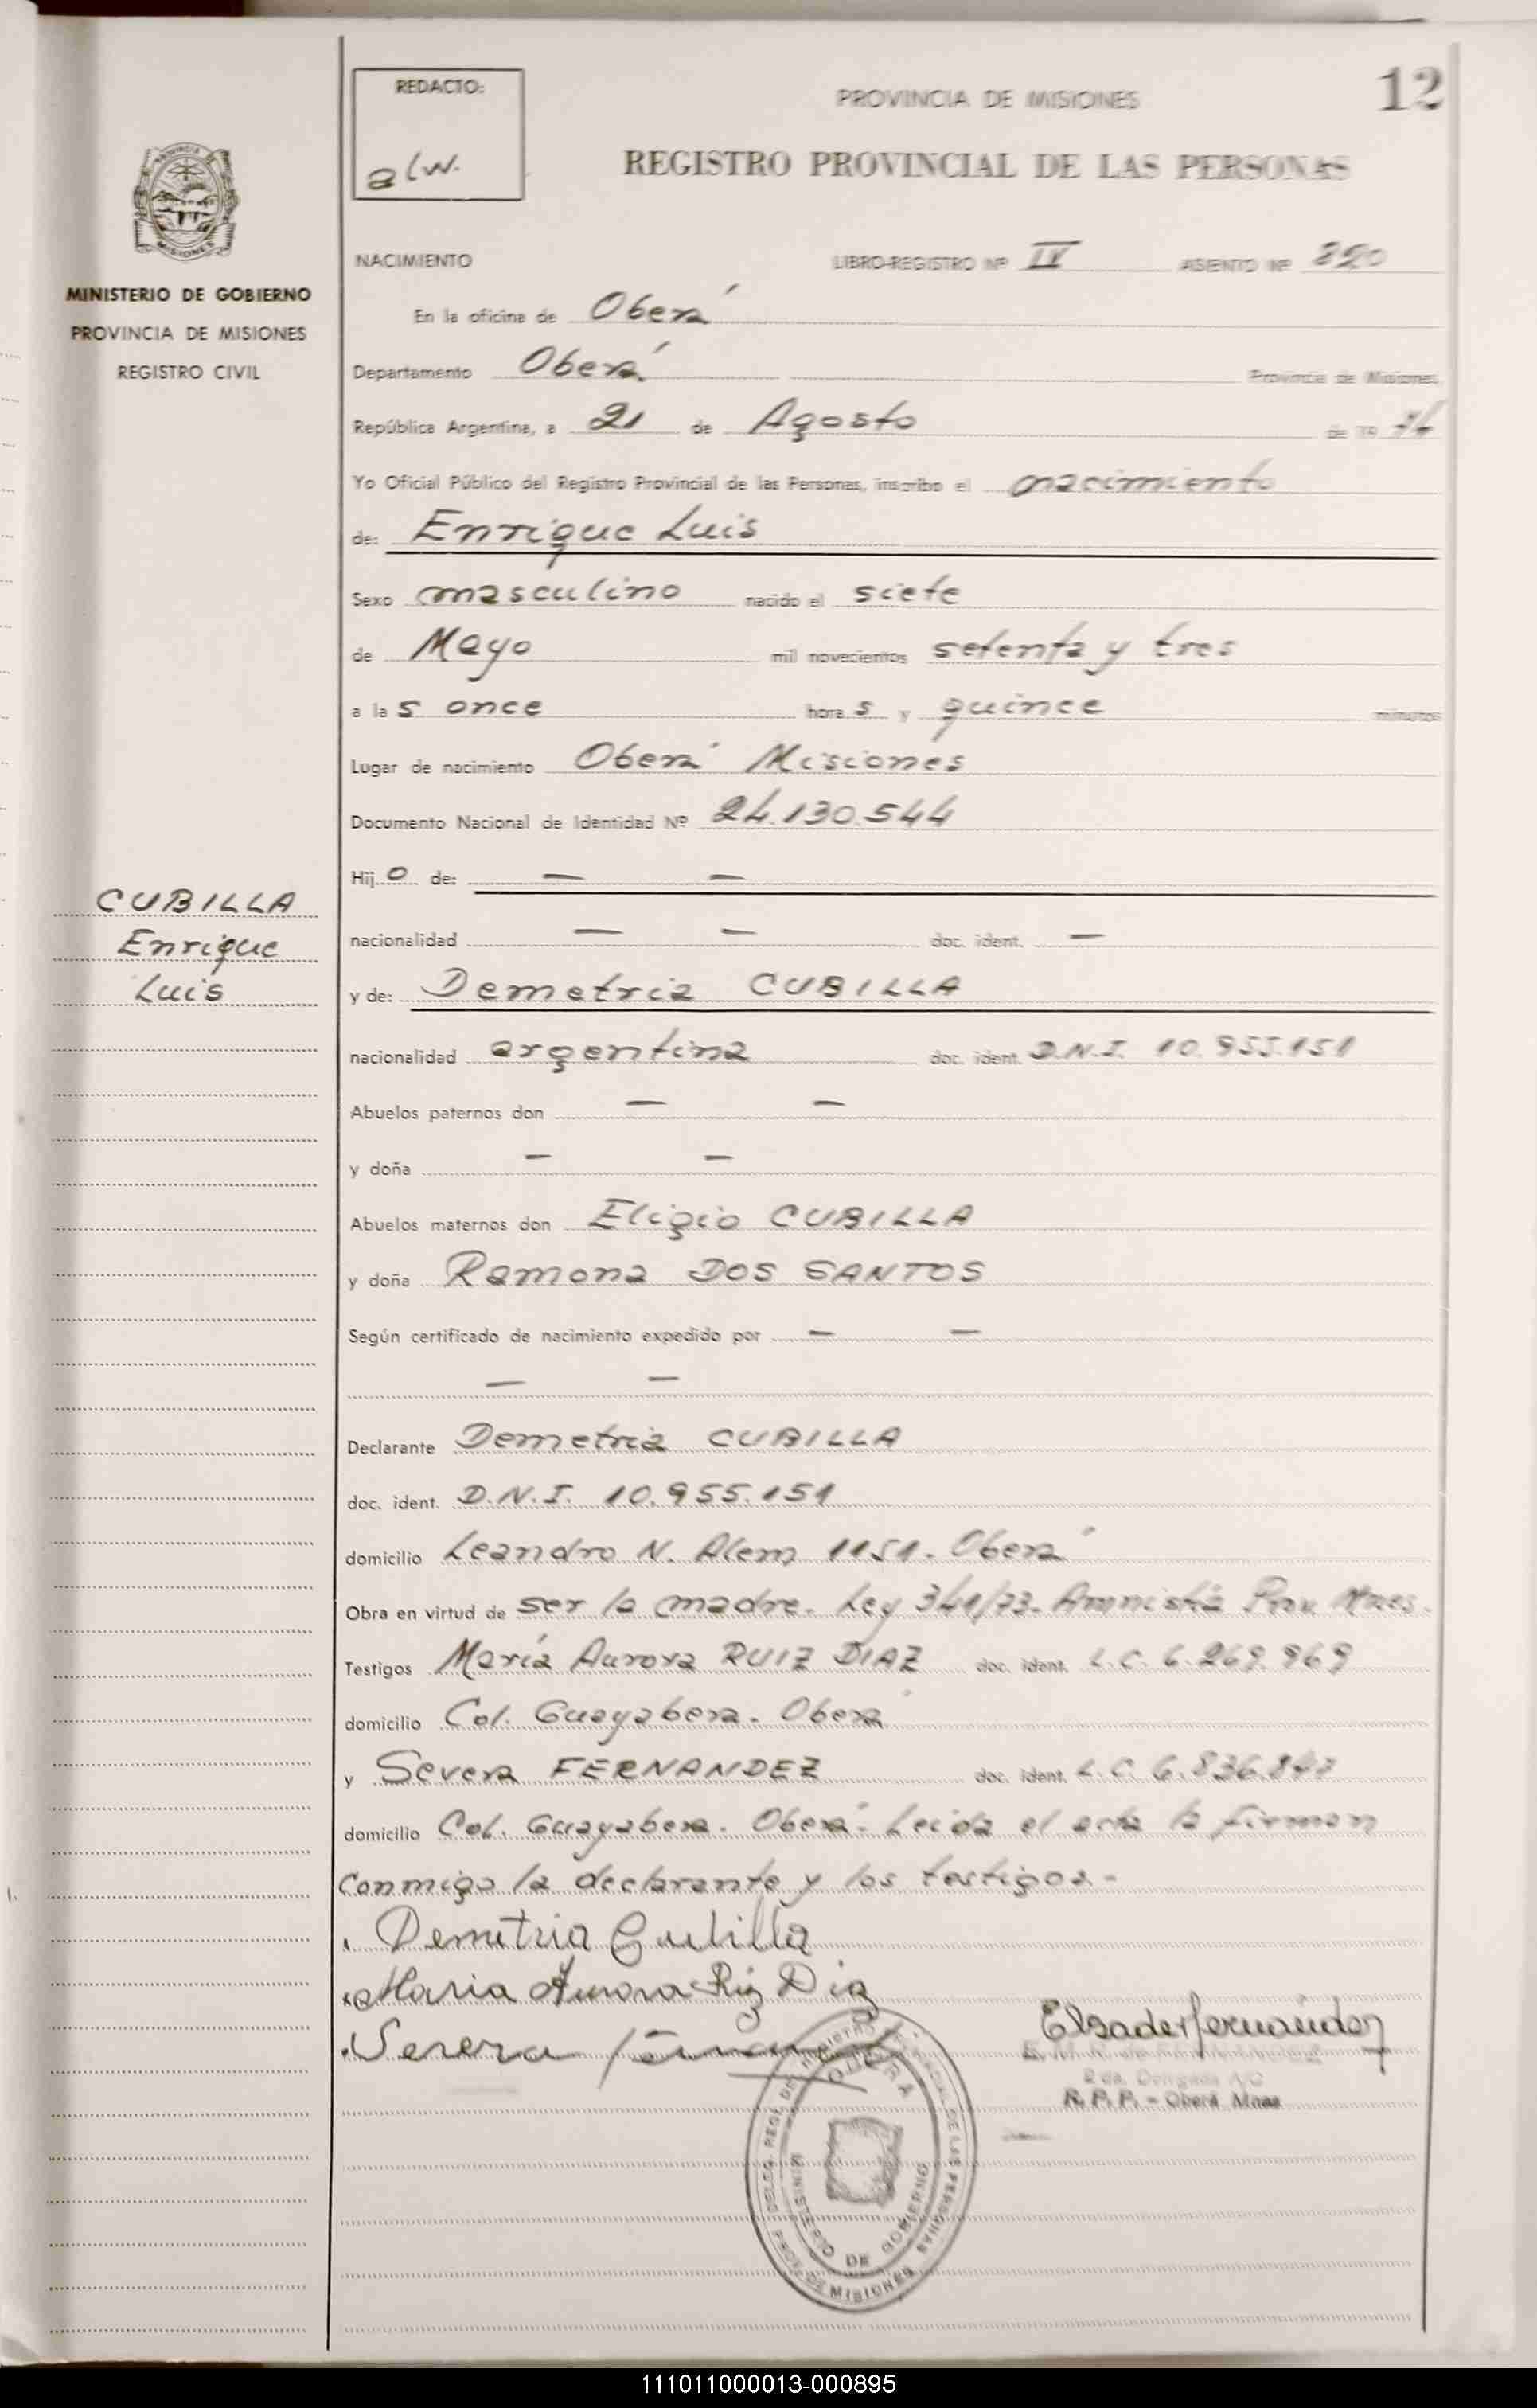 REDACTO:
alw.
PROVINCIA DE MISIONES
12
REGISTRO PROVINCIAL DE LAS PERSONAS
PROVINCIA DE
MISIONES
MINISTERIO DE GOBIERNO
PROVINCIA DE MISIONES
REGISTRO CIVIL
NACIMIENTO LIBRO-REGISTRO Nº IV ASIENTO Nº 820
En la oficina de Oberá
Departamento Oberá Provincia de Misiones,
República Argentina, a 21 de Agosto de 19
Yo Oficial Público del Registro Provincial de las Personas, inscribo el nacimiento
de: Enrique Luis
Sexo masculino nacido el siete
de Mayo mil novecientos setenta y tres
a las once horas y quince minutos
Lugar de nacimiento Oberá Misiones
Documento Nacional de Identidad Nº 24.130.544
Hijo de: — —
nacionalidad — — doc. ident. —
CUBILLA
Enrique
Luis
y de: Demetria CUBILLA
nacionalidad argentina doc. ident. D.N.I. 10.955.151
Abuelos paternos don — —
y doña — —
Abuelos maternos don Eligio CUBILLA
y doña Ramona DOS SANTOS
Según certificado de nacimiento expedido por — —
— —
Declarante Demetria CUBILLA
doc. ident. D.N.I. 10.955.151
domicilio Leandro N. Alem 1151. Oberá
Obra en virtud de ser la madre. Ley 341/73. Amnistía Prov. Mnes.
Testigos María Aurora RUIZ DIAZ doc. ident. L.C. 6.269.969
domicilio Col. Guayabera. Oberá
y Severa FERNANDEZ doc. ident. L.C. 6.836.847
domicilio Col. Guayabera. Oberá. Leída el acta la firman
conmigo la declarante y los testigos.-
Demetria Cubilla
Maria Aurora Ruiz Diaz
Severa
Elsa de Fernandez
2da. Delegada A/C
R.P.P. - Oberá Mnes
MINISTERIO DE GOBIERNO
PROV. DE MISIONES
111011000013-000895